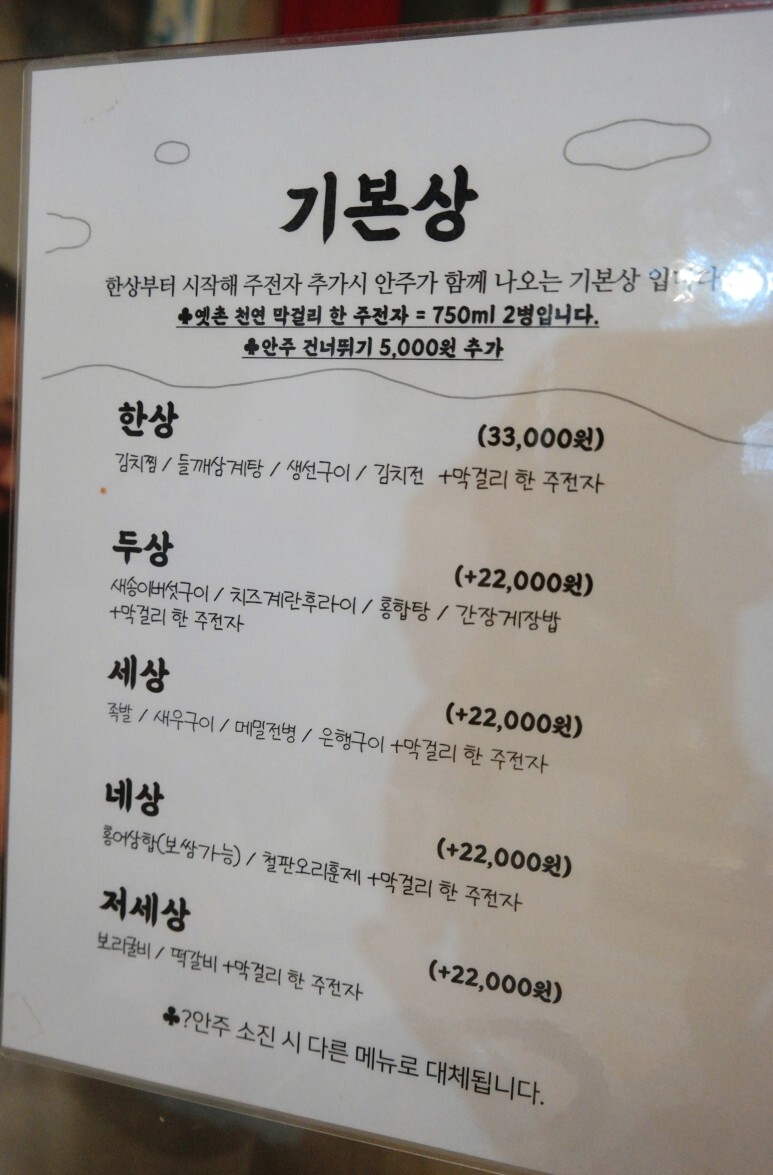 기본상
한상부터 시작해 주전자 추가시 안주가 함께 나오는 기본상 입니다
♣옛촌 천연 막걸리 한 주전자 = 750ml 2병입니다.
♣안주 건너뛰기 5,000원 추가
한상 (33,000원)
김치찜 / 들깨삼계탕 / 생선구이 / 김치전 +막걸리 한 주전자
두상 (+22,000원)
새송이버섯구이 / 치즈계란후라이 / 홍합탕 / 간장게장밥
+막걸리 한 주전자
세상 (+22,000원)
족발 / 새우구이 / 메밀전병 / 은행구이 +막걸리 한 주전자
네상 (+22,000원)
홍어삼합(보쌈가능) / 철판오리훈제 +막걸리 한 주전자
저세상 (+22,000원)
보리굴비 / 떡갈비 +막걸리 한 주전자
♣?안주 소진 시 다른 메뉴로 대체됩니다.